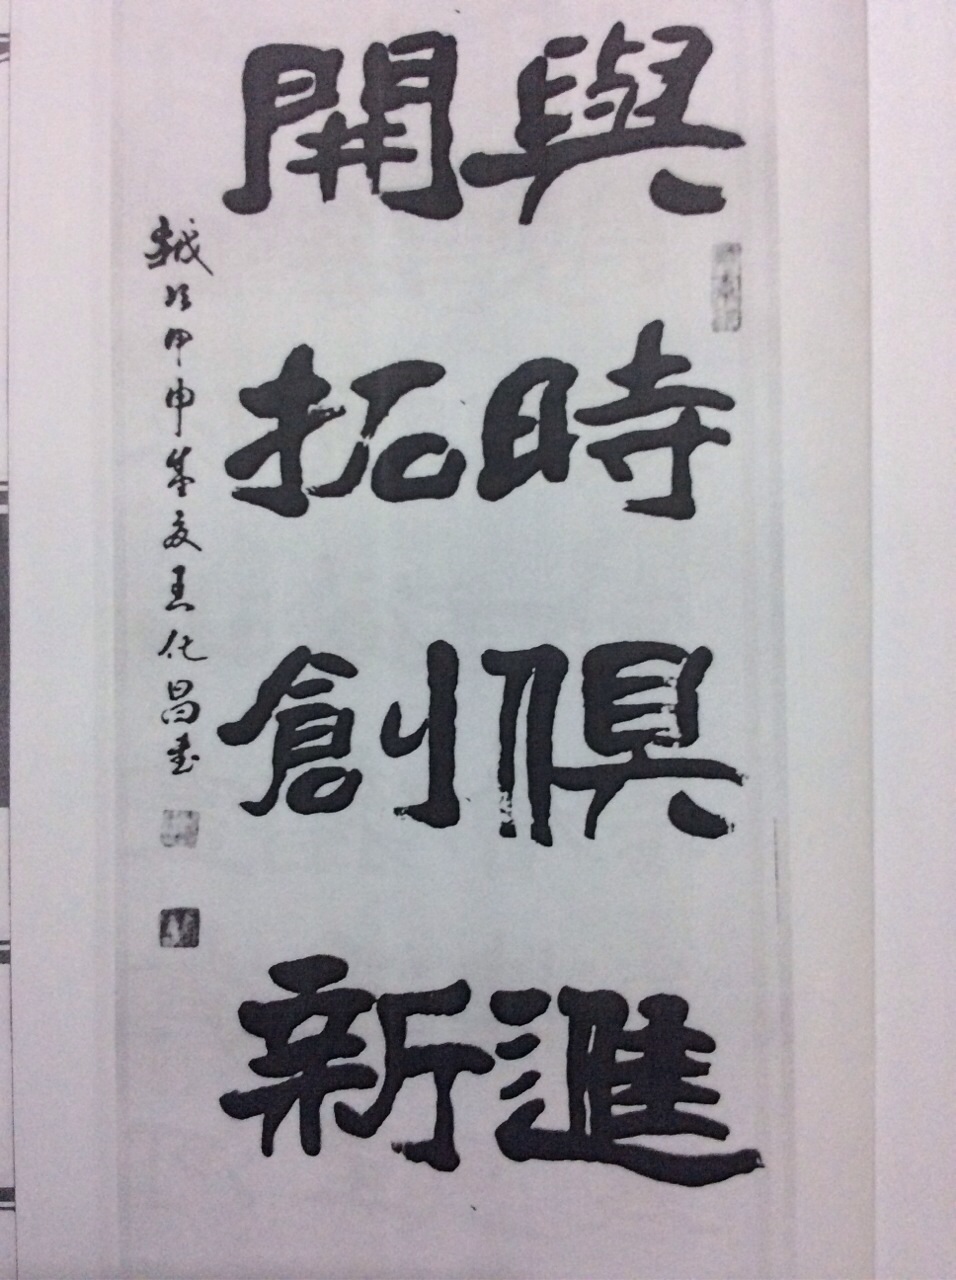 與時俱進
開拓創新
歲次甲申基友王化昌書